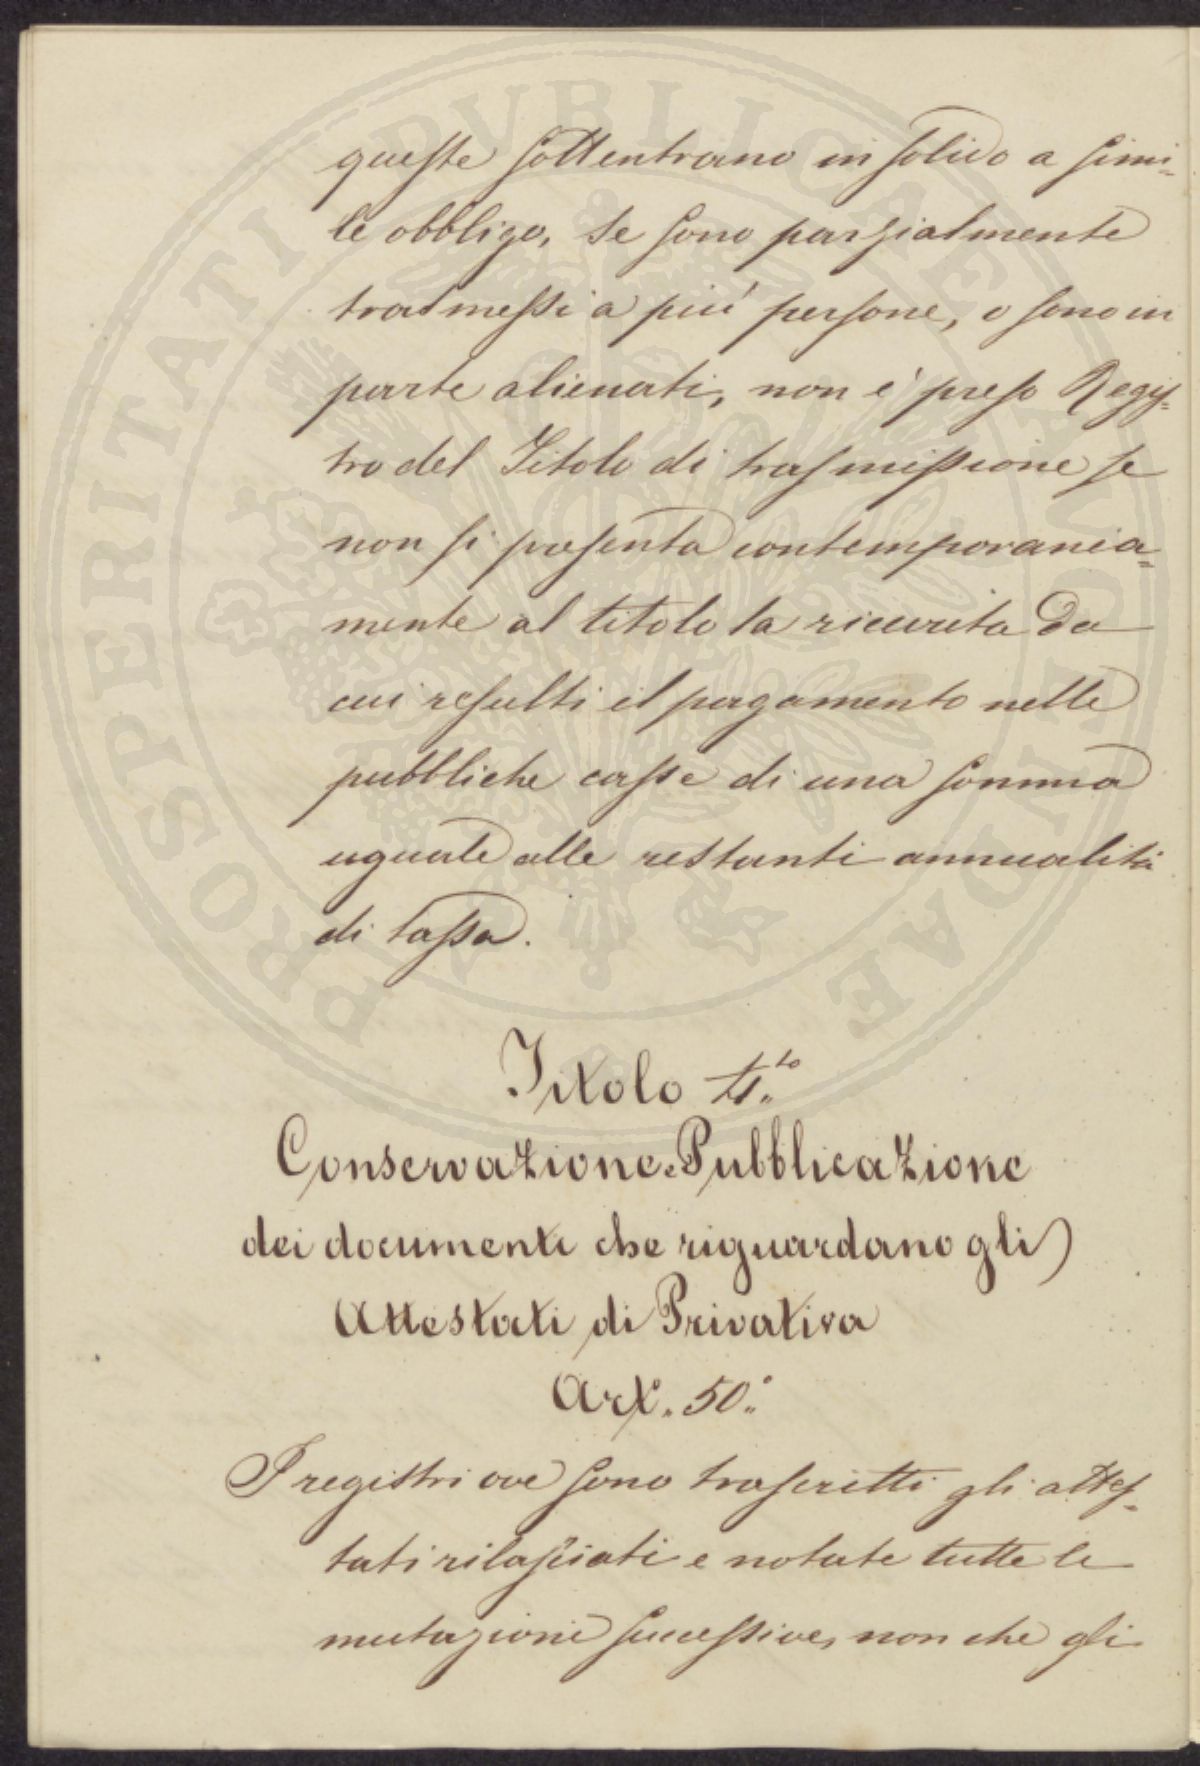 queste sottentrano in solido a simi=
le obbligo. Se sono parzialmente
trasmessi a più persone, o sono in
parte alienati, non è preso Regis=
tro del Titolo di trasmissione se
non si presenta contemporanea=
mente al titolo la ricevuta da
cui resulti il pagamento nelle
pubbliche casse di una somma
uguale alle restanti annualità
di tassa.
Titolo 4.to
Conservazione e Pubblicazione
dei documenti che riguardano gli
Attestati di Privativa
Art. 50.°
I registri ove sono trascritti gli attes=
tati rilasciati e notate tutte le
mutazioni successive, non che gli
PROSPERITATI PVBLICAE AVGENDAE